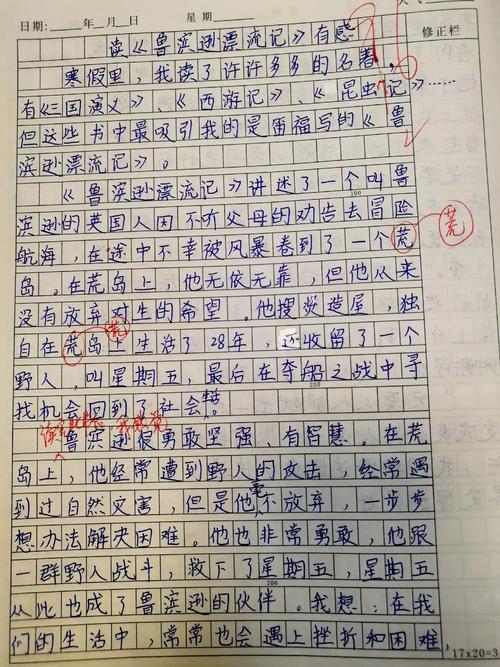 日期：　　年　月　日　星期
修正栏
读《鲁滨逊漂流记》有感
寒假里，我读了许许多多的名著，
有《三国演义》、《西游记》、《昆虫记》……
但这些书中最吸引我的是笛福写的《鲁
滨逊漂流记》。
《鲁滨逊漂流记》讲述了一个叫鲁
100
滨逊的英国人因不听父母的劝告去冒险
航海，在途中不幸被风暴卷到了一个荒
荒
岛。在荒岛上，他无依无靠，但他从来
没有放弃对生的希望。他搜炭造屋，独
荒
自在荒岛上生活了28年，还收留了一个
野人，叫星期五，最后在夺船之战中寻
200
找机会回到了社会。
鲁滨逊很勇敢坚强、有智慧。在荒
岛上，他经常遭到野人的攻击，经常遇
到过自然灾害，但是他毫不放弃，一步步
想办法解决困难。他也非常勇敢，他跟
一群野人战斗，救下了星期五，星期五
300
从此也成了鲁滨逊的伙伴。我想：在我
们的生活中，常常也会遇上挫折和困难，
17×20=3